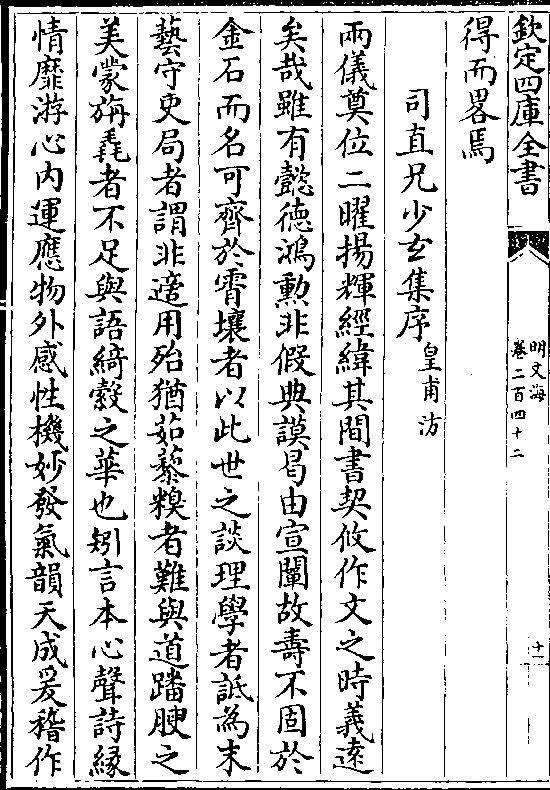 欽定四庫全書
明文海
卷二百四十二
十一
得而畧焉
司直兄少玄集序
皇甫汸
兩儀奠位二曜揚輝經緯其間書契攸作文之時義逺
矣哉雖有懿徳鴻勲非假典謨曷由宣闡故壽不固於
金石而名可齊於霄壤者以此世之談理學者詆為末
藝守吏局者謂非適用殆猶茹藜糗者難與道膰腴之
美蒙旃毳者不足與語綺縠之華也矧言本心聲詩緣
情靡游心内運應物外感性機妙發氣韻天成爰稽作